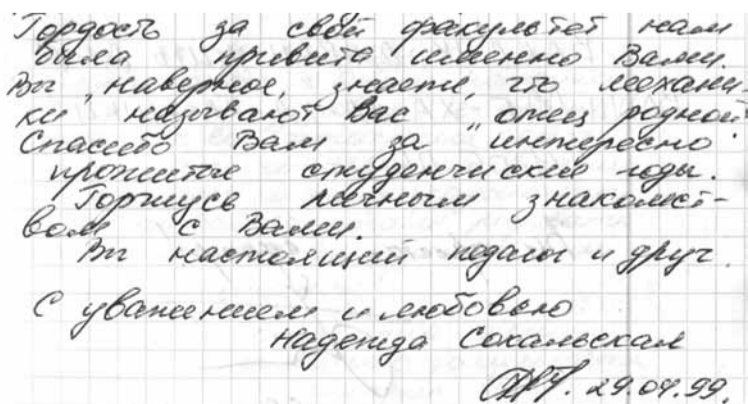 Гордость за свой факультет нам
была привита именно Вами.
Вы, наверное, знаете, что механи-
ки называют Вас "отец родной".
Спасибо Вам за интересно
прожитые студенческие годы.
Горжусь личным знакомст-
вом с Вами.
Вы настоящий педагог и друг.
С уважением и любовью
Надежда Сокальская
29.04.99.